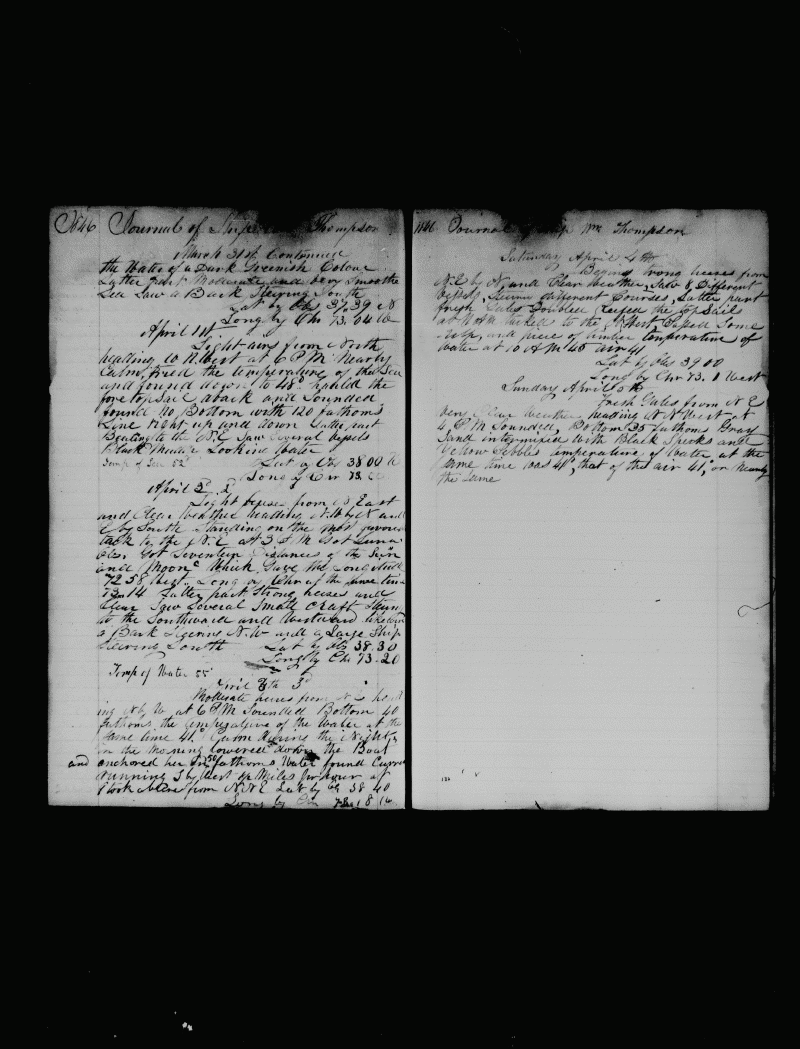 1846 Journal of Ship Wm Thompson
March 31st Continued
the Water of a Dark Greenish Colour
Latter part Moderate and very Smoothe
Sea Saw a Bark Steering South
Lat by Obs 37.39 N
Long by Chr 73.04 W
April 1st
Light airs from North
heading W N West at 6 P M Nearly
Calm, tried the temperature of the Sea
and found down to 48° hauled the
fore top Sail aback and Sounded
found No Bottom with 120 fathoms
Line right up and down Latter part
Beating to the N.E Saw Several Vessels
Black Looking Water
Temp of Sea 52° Lat by Obs 38 00 N
Long by Chr 73
April 2d
Light breeze from N East
and Clear Weather heading N.W by N and
E by South Standing on the most favour
tack to the N.E at 3 P M Got Luna
Obs. Got Seventeen Distances of the Sun
and Moon Which Gave the Longitude
72 58 West. Long by Chr at the same time
73.14 Latter part Strong breeses and
Clear Saw Several Small Craft Steering
to the Southward and Westward likewise
a Bark Steering N.W and a Large Ship
Steering South Lat by Obs 38.30
Long by Chr 73.20
Temp of Water 55°
April 3d
Moderate breeses from N E head
ing N by W at 6 P M Sounded Bottom 40
fathoms the temperature of the Water at the
Same time 41° Calm during the Night
in the Morning lowered down the Boat
and anchored her In fathoms Water found Current
running S by West ½ Miles Per hour at
o'clock Breese from N N E Lat by Obs 38 40
Long by Chr
1846 Journal of Ship Wm Thompson
Saturday April 4th
Begins Strong breeses from
N.E by N and Clear Weather, Saw 8 Different
Vessels, Steering different Courses, Latter part
fresh Gales Doubled Reefed the top Sails
at Noon tacked to the N West, Passed Some
Kelp, and piece of timber temperature of
Water at 10 A M 45 air 41
Lat by Obs 39 00
Long by Chr 73. West
Sunday April 5th
Fresh Gales from N E
very Clear Weather heading N N West at
4 P M Sounded, Bottom 35 fathoms Gray
Sand intermixed with Black Specks and
Yellow Pebbles temperature of Water at the
Same time was 41°, that of the air 41°, or Nearly
the Same